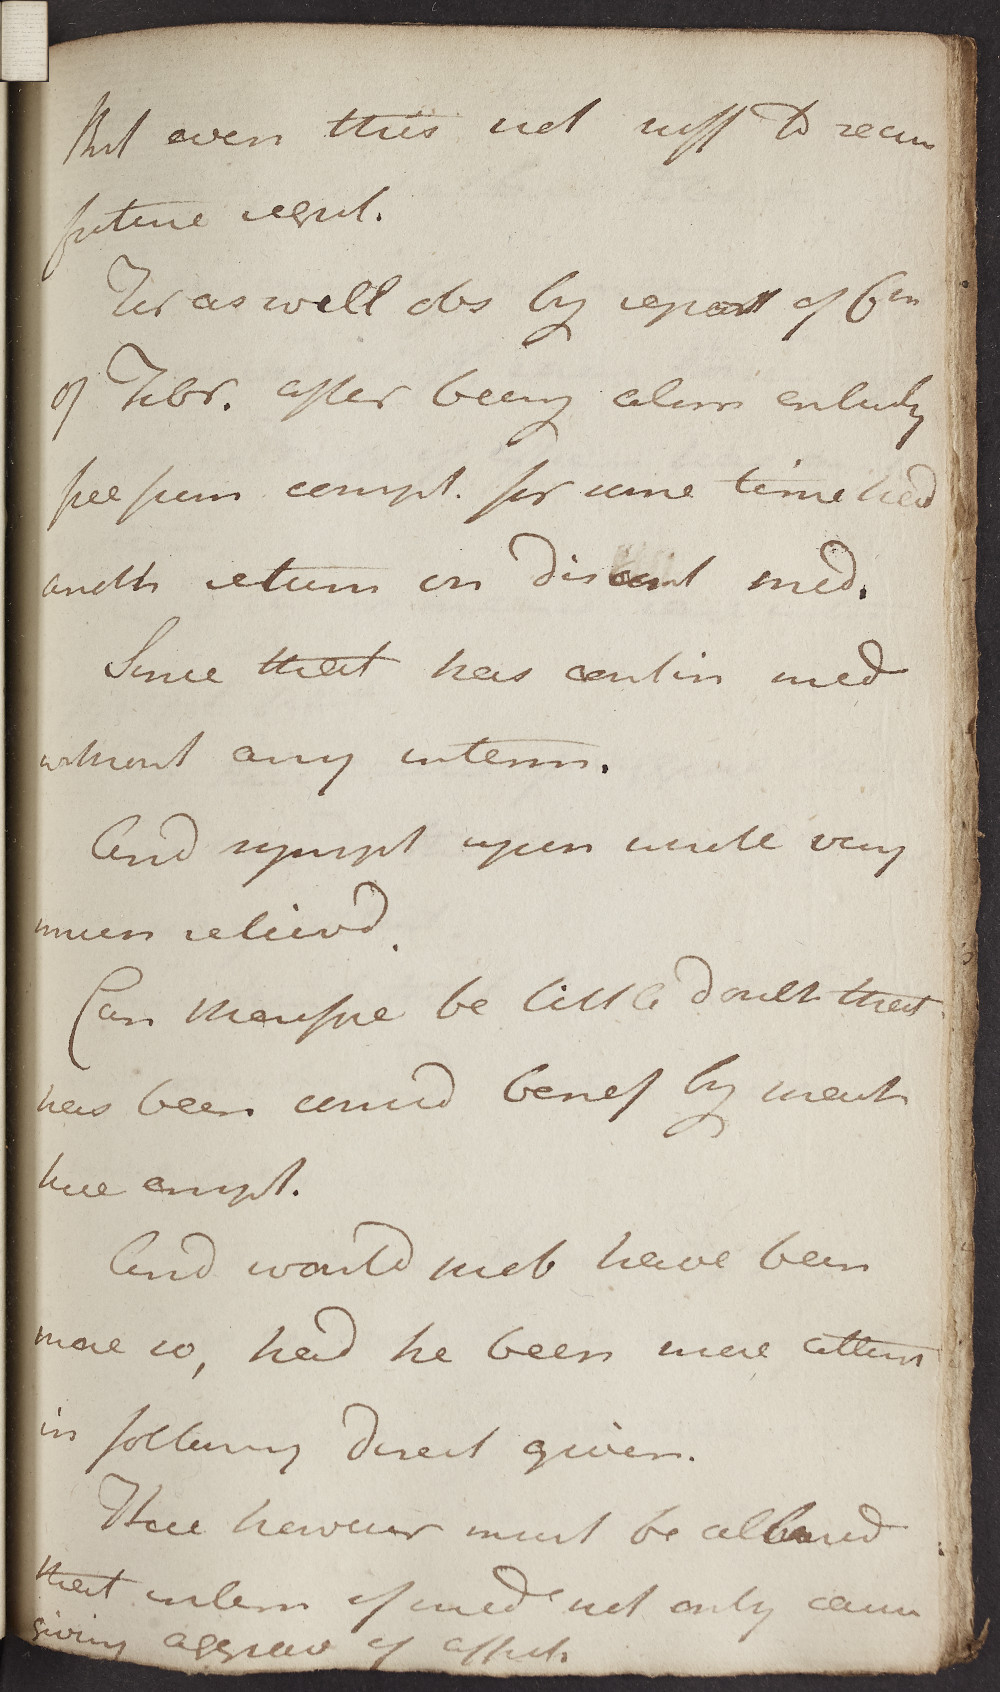 But even this not suff to secur
future regul.
For as well obs by report of 6th
of Febr. after being alm entirely
free from compt. for some time had
anoth return on discont med.
Since that has contin med
without any interm.
And sympt upon whole very
much relievd.
Can therefore be little doubt that
has been consid benef by treatt
here empl.
And would prob have been
more so, had he been more attent
in following direct given.
Here however must be allowed
that interm of med not only caus
giving aggrav of affect.